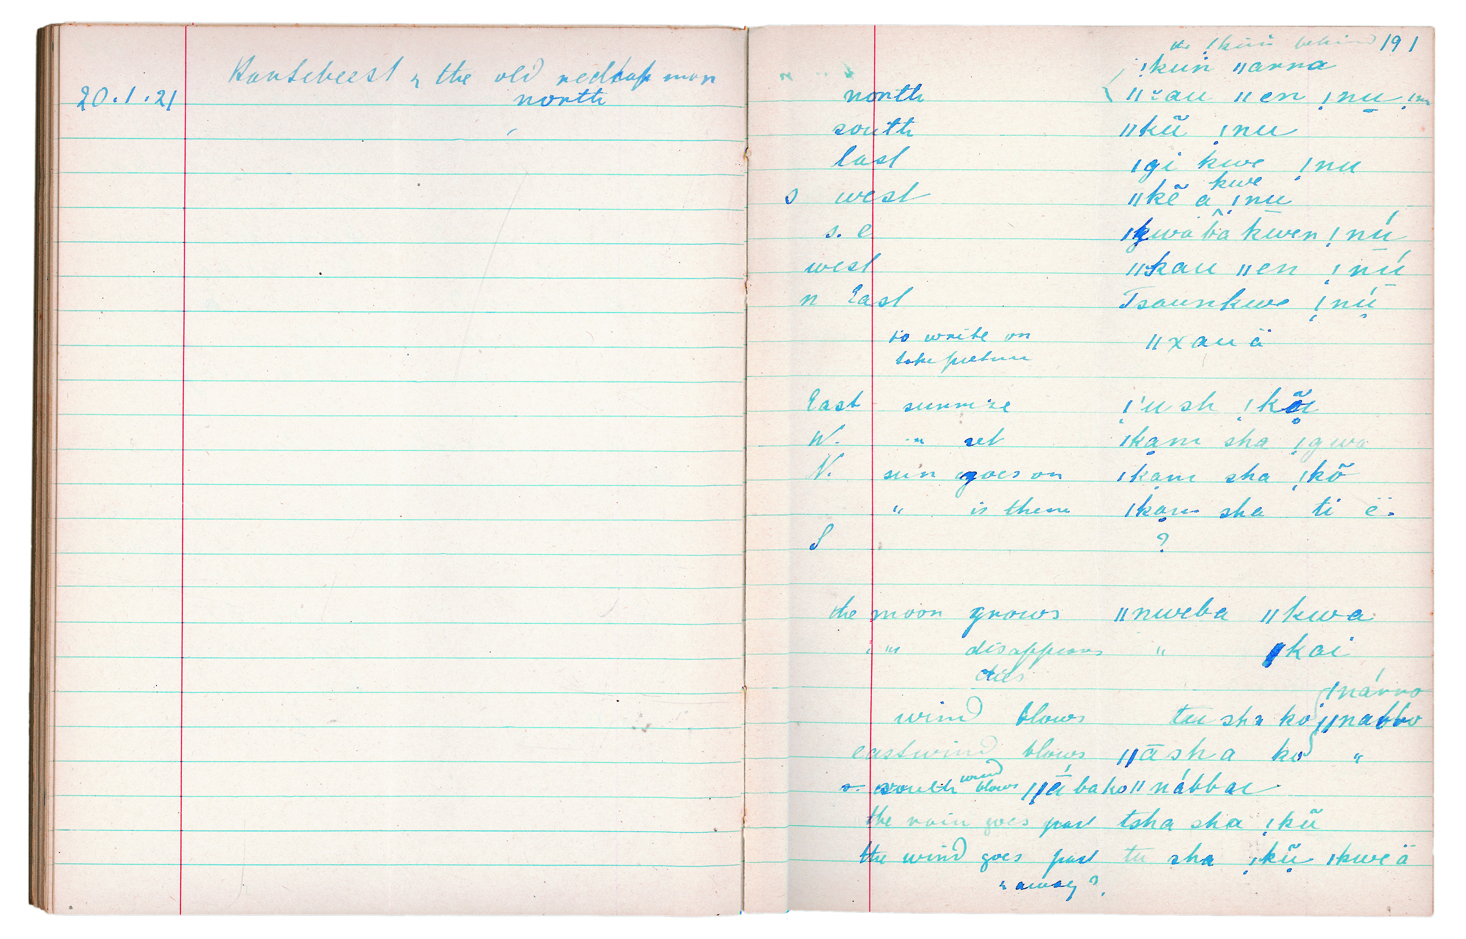 Hartebeest & the old redcap man
20.1.21 north
191
the !kũũ behind
!kun ǁarra
north ǁxau ǁen !nu
south ǁkũ !nu
East ǀgi kwe !nu
kwe
s west ǁkẽ a !nu
s. e ǀkwa ba kwen !nú
west ǁkau ǁen !nú
n East Tsaunkwe !nú
to write on ǁxau ä
take picture
East sunrize !'u sh !kõ
W. " set ǀkam sha !gwa
N. sun goes on ǀkam sha !kõ
" is there ǀkam sha ti ë.
S ?
the moon grows ǁnweba ǁkwa
" " disappears " ǀkai
dies
ǀnárro
wind blows tu sha ko ǁnabbo
eastwind blows ǁāsha ko "
wind
south blows ǁá baho ǁnábbae
the rain goes past tsha sha !kũ
the wind goes past tu sha !kũ ǀkwe ä
& away?